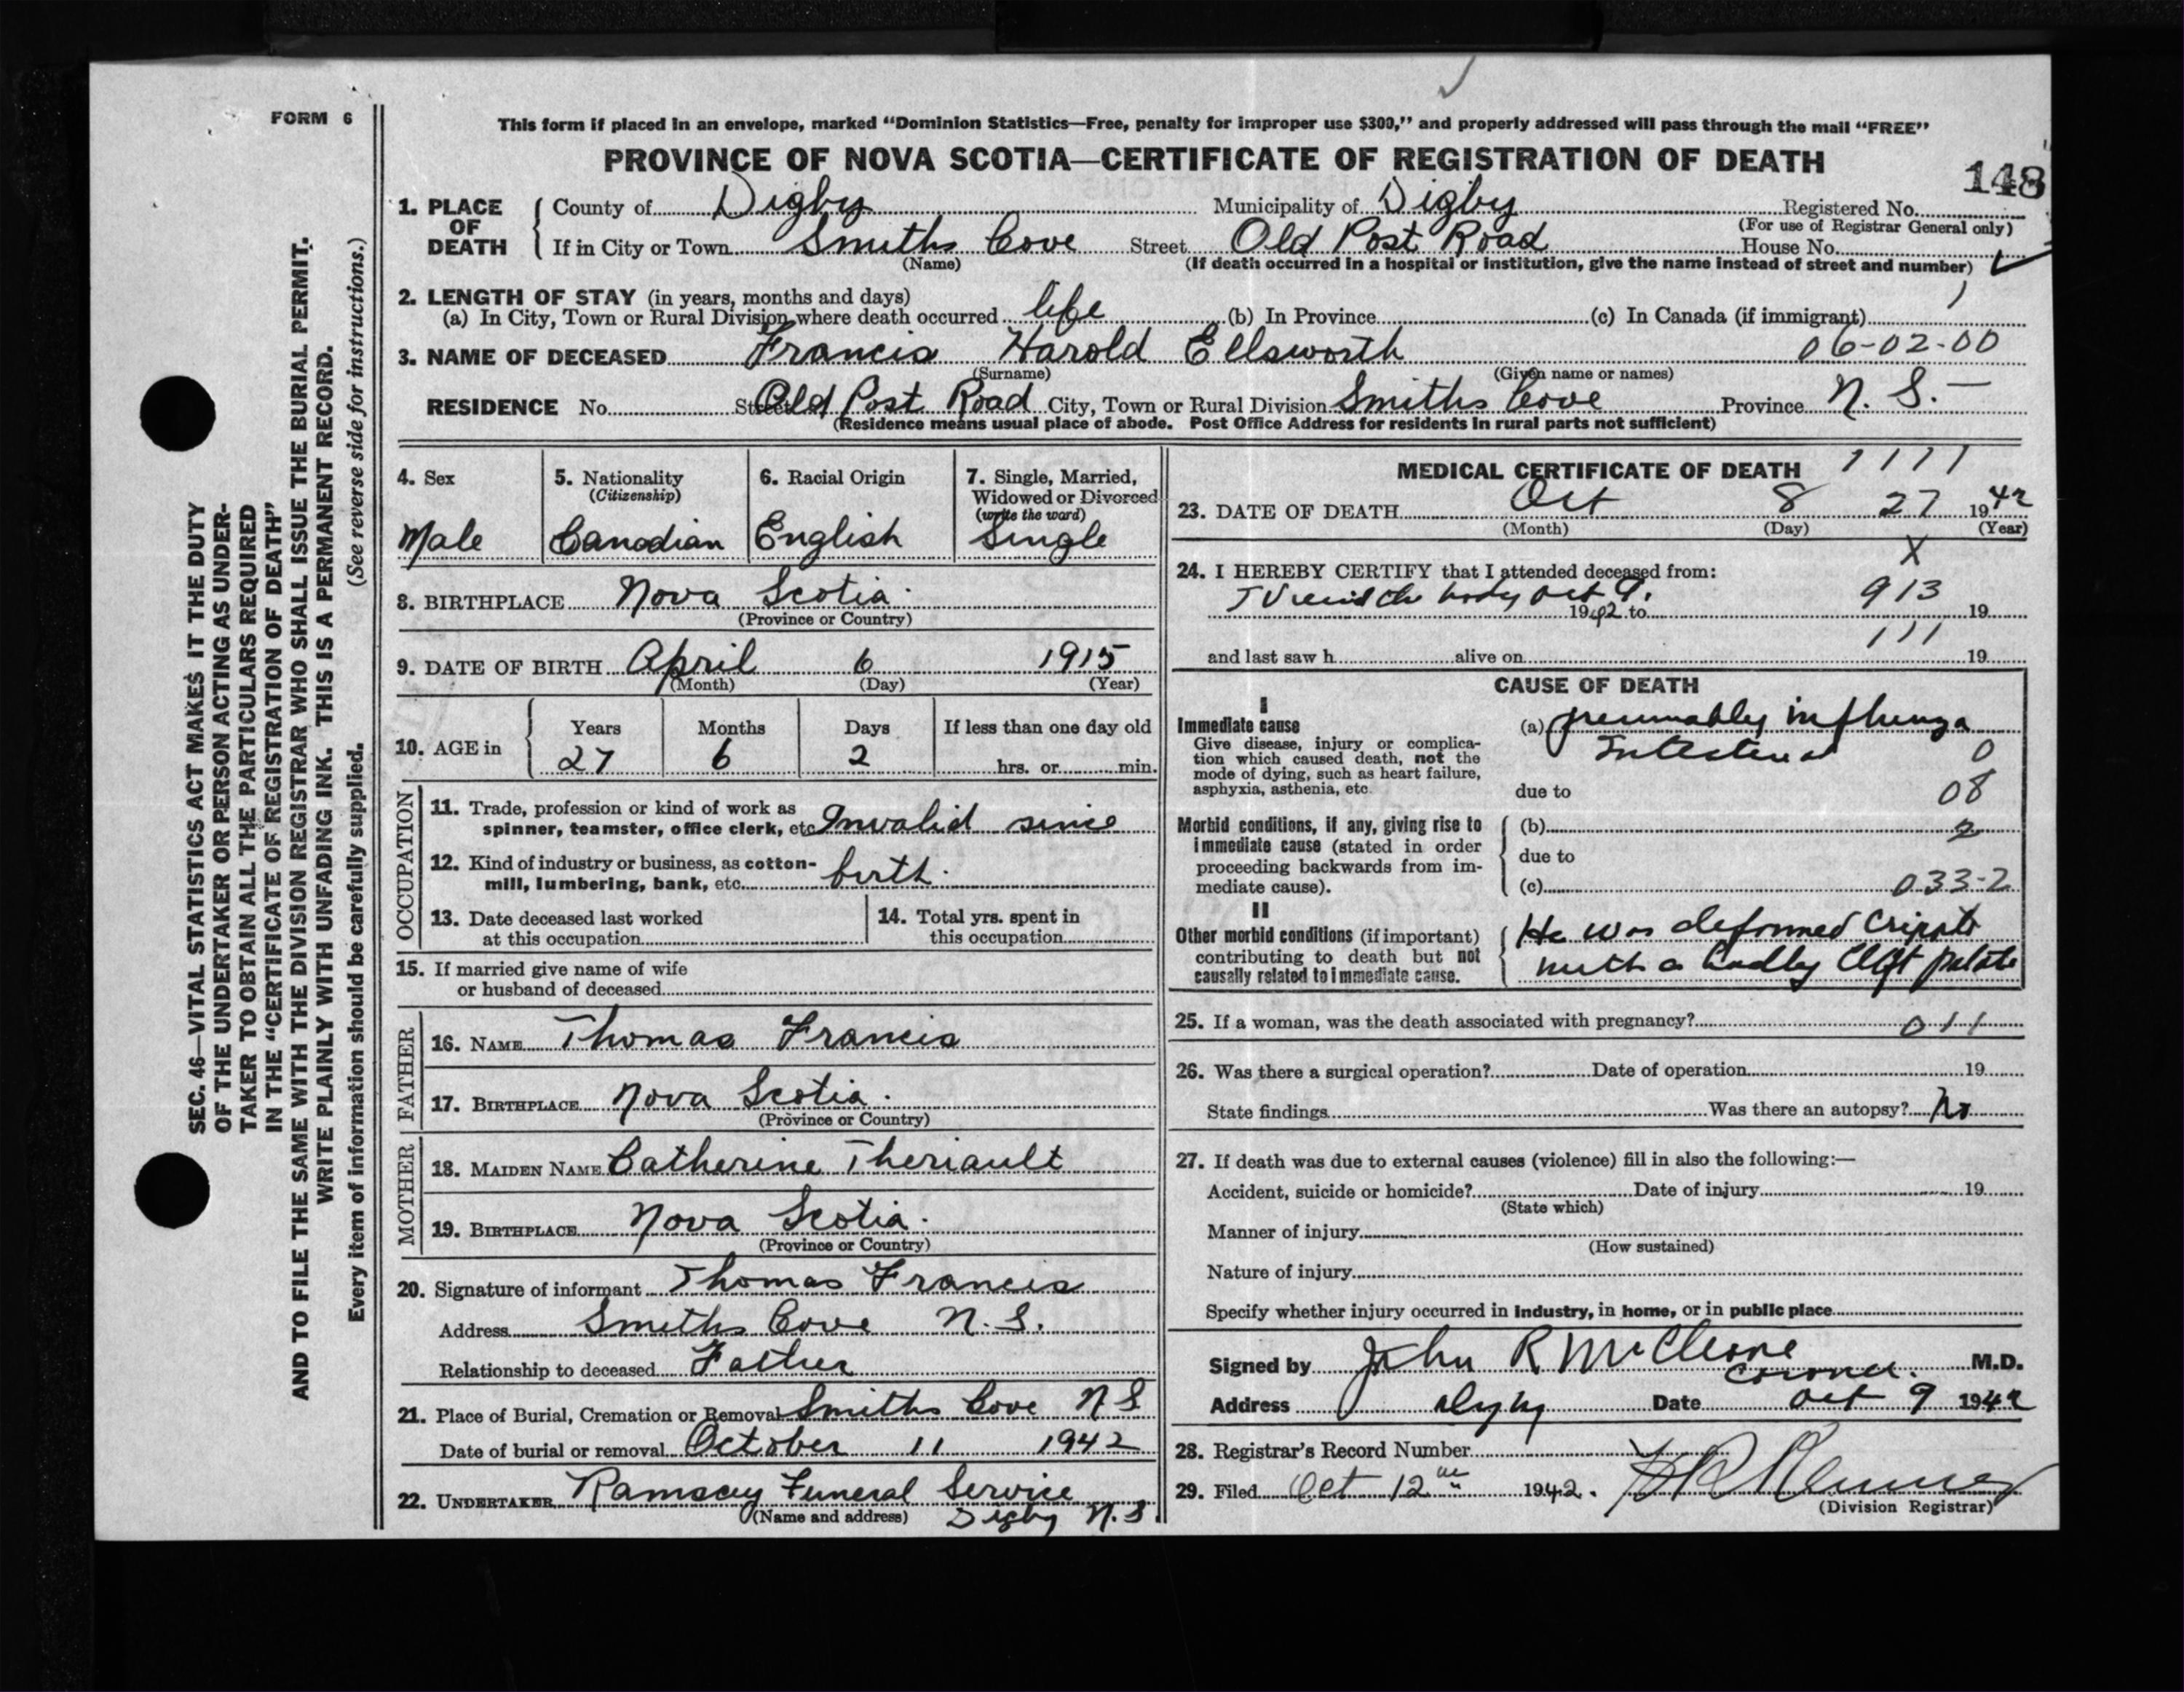 FORM 6
This form if placed in an envelope, marked “Dominion Statistics—Free, penalty for improper use $300,” and properly addressed will pass through the mail “FREE”
PROVINCE OF NOVA SCOTIA—CERTIFICATE OF REGISTRATION OF DEATH
148
1. PLACE OF DEATH { County of Digby Municipality of Digby Registered No.
(For use of Registrar General only)
If in City or Town Smiths Cove Street Old Post Road House No.
(Name) (If death occurred in a hospital or institution, give the name instead of street and number)
2. LENGTH OF STAY (in years, months and days)
(a) In City, Town or Rural Division where death occurred life (b) In Province (c) In Canada (if immigrant)
3. NAME OF DECEASED Francis Harold Ellsworth 06-02-00
(Surname) (Given name or names)
RESIDENCE No. Street Old Post Road City, Town or Rural Division Smiths Cove Province N. S. —
(Residence means usual place of abode. Post Office Address for residents in rural parts not sufficient)
SEC. 46—VITAL STATISTICS ACT MAKES IT THE DUTY
OF THE UNDERTAKER OR PERSON ACTING AS UNDER-
TAKER TO OBTAIN ALL THE PARTICULARS REQUIRED
IN THE “CERTIFICATE OF REGISTRATION OF DEATH”
AND TO FILE THE SAME WITH THE DIVISION REGISTRAR WHO SHALL ISSUE THE BURIAL PERMIT.
WRITE PLAINLY WITH UNFADING INK. THIS IS A PERMANENT RECORD.
Every item of information should be carefully supplied. (See reverse side for instructions.)
4. Sex
Male
5. Nationality
(Citizenship)
Canadian
6. Racial Origin
English
7. Single, Married,
Widowed or Divorced
(write the word)
Single
8. BIRTHPLACE Nova Scotia.
(Province or Country)
9. DATE OF BIRTH April 6 1915
(Month) (Day) (Year)
10. AGE in { Years Months Days If less than one day old
27 6 2 hrs. or min.
OCCUPATION
11. Trade, profession or kind of work as
spinner, teamster, office clerk, etc. Invalid since
12. Kind of industry or business, as cotton-
mill, lumbering, bank, etc. birth.
13. Date deceased last worked
at this occupation
14. Total yrs. spent in
this occupation
15. If married give name of wife
or husband of deceased
FATHER
16. NAME Thomas Francis
17. BIRTHPLACE Nova Scotia.
(Province or Country)
MOTHER
18. MAIDEN NAME Catherine Theriault
19. BIRTHPLACE Nova Scotia.
(Province or Country)
20. Signature of informant Thomas Francis
Address Smiths Cove N.S.
Relationship to deceased Father
21. Place of Burial, Cremation or Removal Smiths Cove N S
Date of burial or removal October 11 1942
22. UNDERTAKER Ramsey Funeral Service
(Name and address) Digby N.S.
MEDICAL CERTIFICATE OF DEATH 1111
23. DATE OF DEATH Oct 8 27 1942
(Month) (Day) (Year)
X
24. I HEREBY CERTIFY that I attended deceased from:
the body Oct 9. 1942 to 913 19
111
and last saw h alive on 19
CAUSE OF DEATH
I
Immediate cause
Give disease, injury or complica-
tion which caused death, not the
mode of dying, such as heart failure,
asphyxia, asthenia, etc.
(a) presumably influenza
Intestinal 0
due to 08
Morbid conditions, if any, giving rise to
immediate cause (stated in order
proceeding backwards from im-
mediate cause).
(b) 2
due to
(c) 033-2
II
Other morbid conditions (if important)
contributing to death but not
causally related to immediate cause.
He was deformed cripple
with a badly cleft palate
25. If a woman, was the death associated with pregnancy? 011
26. Was there a surgical operation? Date of operation 19
State findings Was there an autopsy? No
27. If death was due to external causes (violence) fill in also the following:—
Accident, suicide or homicide? Date of injury 19
(State which)
Manner of injury
(How sustained)
Nature of injury
Specify whether injury occurred in industry, in home, or in public place
Signed by John R McCleave M.D.
Coroner.
Address Digby Date Oct 9 1942
28. Registrar's Record Number
29. Filed Oct 12th 1942.
(Division Registrar)